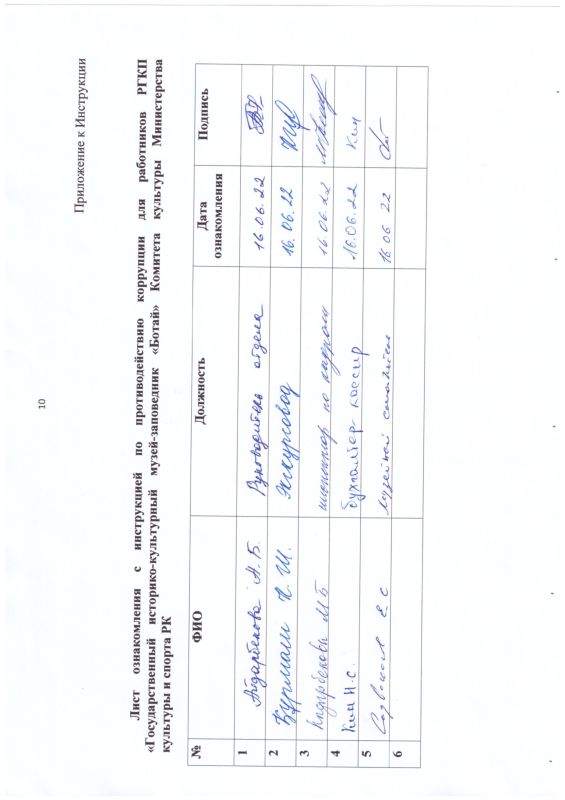 10
Приложение к Инструкции
Лист ознакомления с инструкцией по противодействию коррупции для работников РГКП
«Государственный историко-культурный музей-заповедник «Ботай» Комитета культуры Министерства
культуры и спорта РК
№ ФИО Должность Дата ознакомления Подпись
1 Айдарбекова А.Б. Руководитель отдела 16.06.22
2 Құрмаш Н.Ш. Экскурсовод 16.06.22
3 Кадарбекова М Б инспектор по кадрам 16.06.22
4 Ким Н.С. бухгалтер кассир 16.06.22 Ким
5 Е С музейный смотритель 16 06 22
6